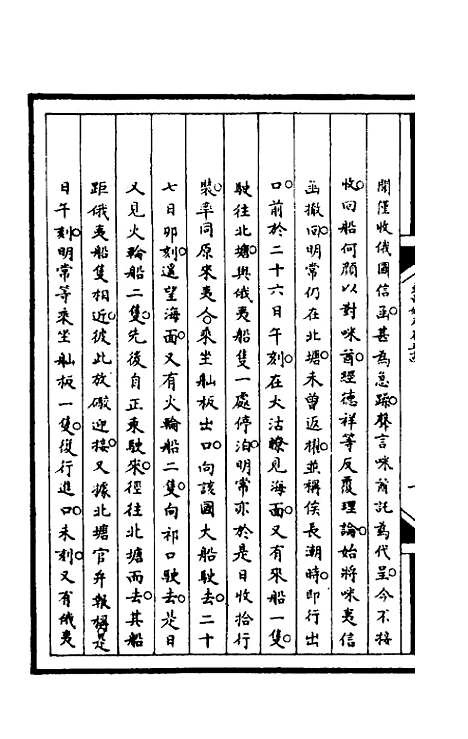 聞僅收俄國信函甚為急躁聲言咪酋託為代呈今不接
收回船何顔以對咪酋經德祥等反覆理論始將咪夷信
函撤回明常仍在北塘未曾返櫂並稱俟長潮時即行出
口前於二十六日午刻在大沽瞭見海面又有來船一隻
駛往北塘與俄夷船隻一處停泊明常亦於是日收拾行
裝率同原來夷人乘坐舢板出口向該國大船駛去二十
七日卯刻遥望海面又有火輪船二隻向祁口駛去是日
又見火輪船二隻先後自正東駛來徑往北塘而去其船
距俄夷船隻相近彼此放礮迎接又據北塘官弁報稱是
日午刻明常等乘坐舢板一隻復行進口未刻又有俄夷